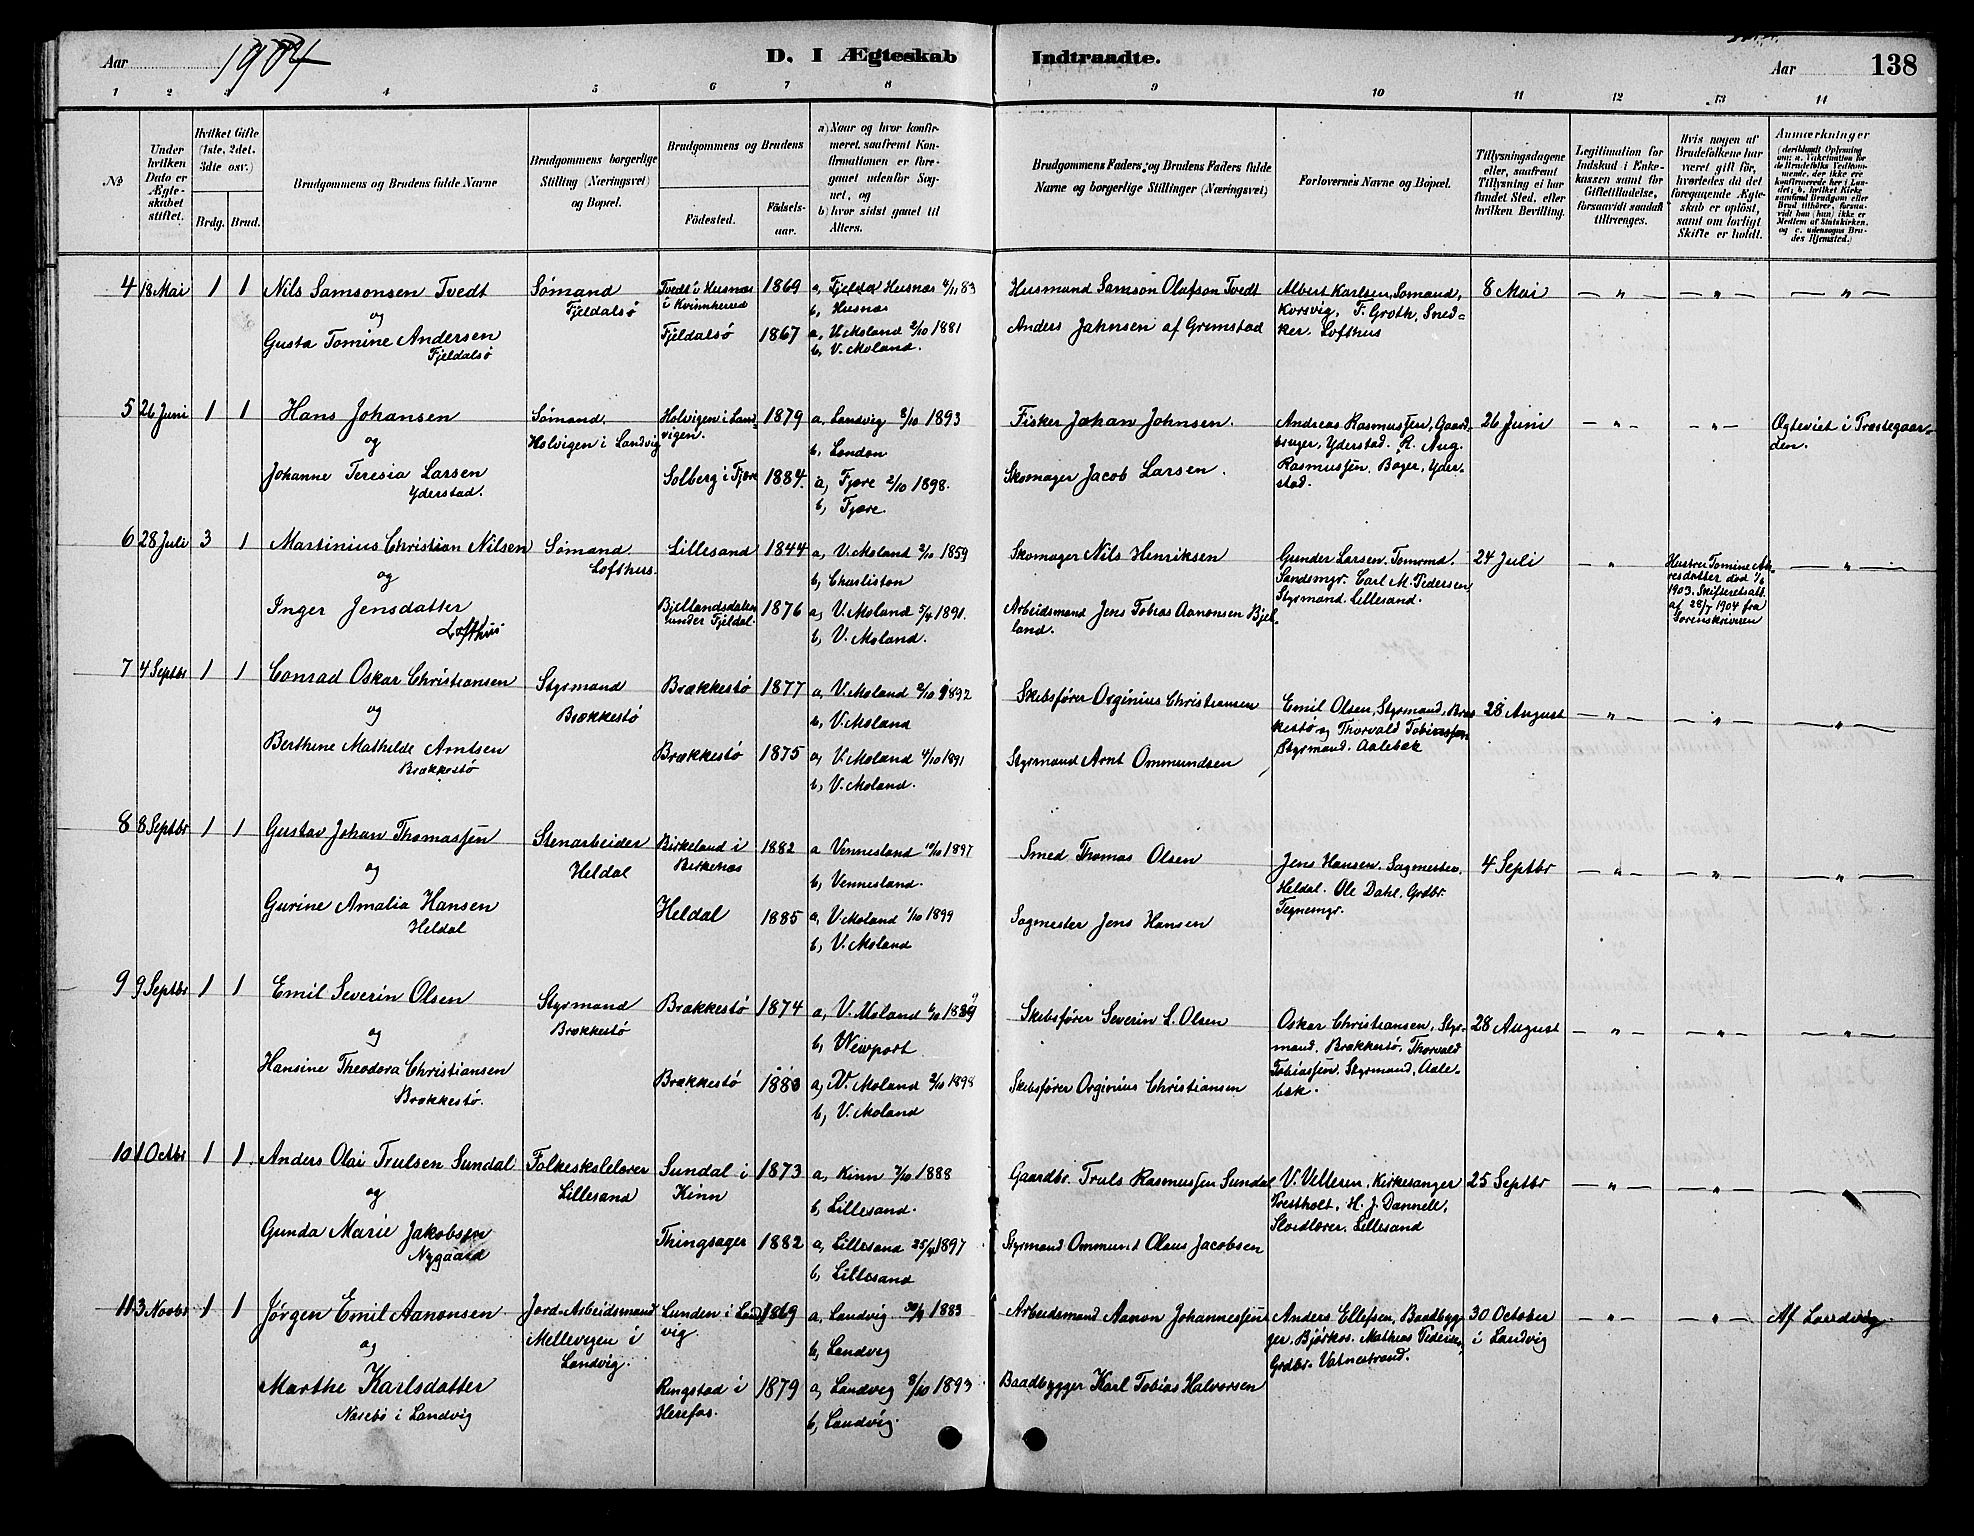 Aar 1904
D. I Ægteskab Indtraadte.
Aar 138
1 2 3 4 5 6 7 8 9 10 11 12 13 14
№
Under hvilken Dato er Ægteskabet stiftet.
Hvilket Gifte (1ste, 2det, 3dte osv.)
Brdg. Brud.
Brudgommens og Brudens fulde Navne
Brudgommens borgerlige Stilling (Næringsvei) og Bopæl.
Brudgommens og Brudens
Fødested.
Fødselsaar.
a) Naar og hvor konfirmeret, saafremt Konfirmationen er foregaaet udenfor Sognet, og
b) hvor sidst gaaet til Alters.
Brudgommens Faders og Brudens Faders fulde Navne og borgerlige Stillinger (Næringsvei)
Forlovernes Navne og Bopæl.
Tillysningsdagene eller, saafremt Tillysning ei har fundet Sted, efter hvilken Bevilling.
Legitimation for Indskud i Enkekassen samt for Giftetilladelse, forsaavidt saadan tiltrænges.
Hvis nogen af Brudefolkene har været gift før, hvorledes da det foregaaende Ægteskab er opløst, samt om lovligt Skifte er holdt.
Anmærkninger (deriblandt Oplysning om: a. Vakcination for de Brudefolks Vedkommende, der ikke ere konfirmerede her i Landet; b. hvilket Kirkesamfund Brudgom eller Brud tilhører, forsaavidt han (hun) ikke er Medlem af Statskirken, og c. udensogns Brudes Hjemsted.)
4 18 Mai 1 1 Nils Samsonsen Tvedt
og
Gusta Tomine Andersen
Fjeldalsö
Sømand
Fjeldalsö
Tvedt i Husnæs
i Kvinnhered
1869
a, Fjelsta Husnæs 4/11 83
b, Husnæs
Fjeldalsö 1867
a, V. Moland 2/10 1881
b, V. Moland.
Husmand Samson Olafson Tvedt
Anders Jahnsen af Grimstad
Albert Karlsen, Sømand,
Korsvig, T. Groth, Sned-
ker. Lofthus
8 Mai
— „ — — „ — — „ —
5 26 Juni 1 1 Hans Johansen
og
Johanne Teresia Larsen
Yderstad.
Sømand.
Holvigen i Landvig
Holvigen i Land
vigen.
1879
a, Landvig 8/10 1893
b, London
Solberg i Fjære 1884.
a, Fjære 2/10 1898.
b, Fjære.
Fisker Johan Johnsen.
Skomager Jacob Larsen.
Andreas Rasmussen, Gaard-
bruger, Yderstad. R. Aug.
Rasmussen, Bager, Yder-
stad.
26 Juni
— „ — — „ —
Ogteviet i Præstegaar-
den.
6 28 Juli 3 1 Martinius Christian Nilsen
og
Inger Jensdatter
Lofthus
Sømand
Lofthus.
Lillesand 1844
a, V. Moland 2/10 1859
b, Charliston
Bjellandsdalen
under Fjeldal.
1876
a, V. Moland 5/4 1891.
b, V. Moland.
Skomager Nils Henriksen
Arbeidsmand Jens Tobias Aanonsen Bjel-
land.
Gunder Larsen. Tømrmd.
Sandsmyr. Carl M. Pedersen
Styrmand. Lillesand.
24 Juli
— „ —
Hustru Tomine An-
resdatter død 1/6
1903. Skifteretsatt.
af 28/7 1904 fra
Sorenskriveren
— „ —
7 4 Septbr 1 1 Conrad Oskar Christiansen
og
Berthine Mathilde Arntsen
Brækkestö
Styrmand
Brækkestö
Brækkestö 1877
a, V. Moland 2/10 1892
b, V. Moland
Brækkestö 1875
a, V. Moland 4/10 1891
b, V. Moland.
Skibsfører Orginius Christiansen
Styrmand Arnt Ommundsen
Emil Olsen, Styrmand, Bræk
kestö og Thorvald Tobiassen
Styrmand. Aalebæk
28 August
— „ — — „ — — „ —
8 8 Septbr 1 1 Gustav Johan Thomassen
og
Gurine Amalia Hansen
Heldal
Stenarbeider
Heldal
Birkeland i
Birkenæs
1882
a Vennesland 10/10 1897
b, Vennesland.
Heldal 1885
a, V. Moland 1/10 1899
b, V. Moland
Smed Thomas Olsen
Sagmester Jens Hansen
Jens Hansen. Sagmester,
Heldal. Ole Dahl, Grdbr.
Tegnemyr.
4 Septbr
— „ — — „ — — „ —
9 9 Septbr 1 1 Emil Severin Olsen
og
Hansine Theodora Christiansen
Brækkestö.
Styrmand
Brækkestö
Brækkestö 1874
a, V. Moland 6/10 1889
b, Newport
Brækkestö 1883
a, V. Moland 2/10 1898
b, V. Moland
Skibsfører Severin S. Olsen
Skibsfører Orginius Christiansen
Oskar Christiansen, Styr-
mand, Brækkestö, Thorvald
Tobiassen. Styrmand, Aale-
bæk.
28 August
— „ — — „ — — „ —
10 1 Octbr 1 1. Anders Olai Trulsen Sundal
og
Gunda Marie Jakobsen
Nygaard
Folkeskolelærer
Lillesand
Sundal i
Kinn
1873
a, Kinn 7/10 1888
b, Lillesand.
Thingsager 1882
a, Lillesand 25/4 1897
b, Lillesand
Gaardbr. Truls Rasmussen Sundal
Styrmand Ommund Olaus Jacobsen
V. Vellesen, Kirkesanger
Prestholt, H. J. Dannell,
Sloidlærer, Lillesand
25 Septbr
— „ — — „ — — „ —
11 3 Novbr 1 1 Jørgen Emil Aanonsen
og
Marthe Karlsdatter
Næsebö i Landvig
Jord-Arbeidsmand
Mellevegen i
Landvig.
Lunden i Land
vig.
1869
a, Landvig 30/9 1883
b, Landvig
Ringstad i
Herefos.
1879
a, Landvig 8/10 1893
b, Landvig.
Arbeidsmand Aanon Johannessen
Baadbygger Karl Tobias Halvorsen
Anders Ellefsen, Baadbyg-
ger, Björkos. Mathias Pedersen,
Grdbr. Vatnestrand.
30 October
i Landvig
— „ — — „ —
Af Landvig.